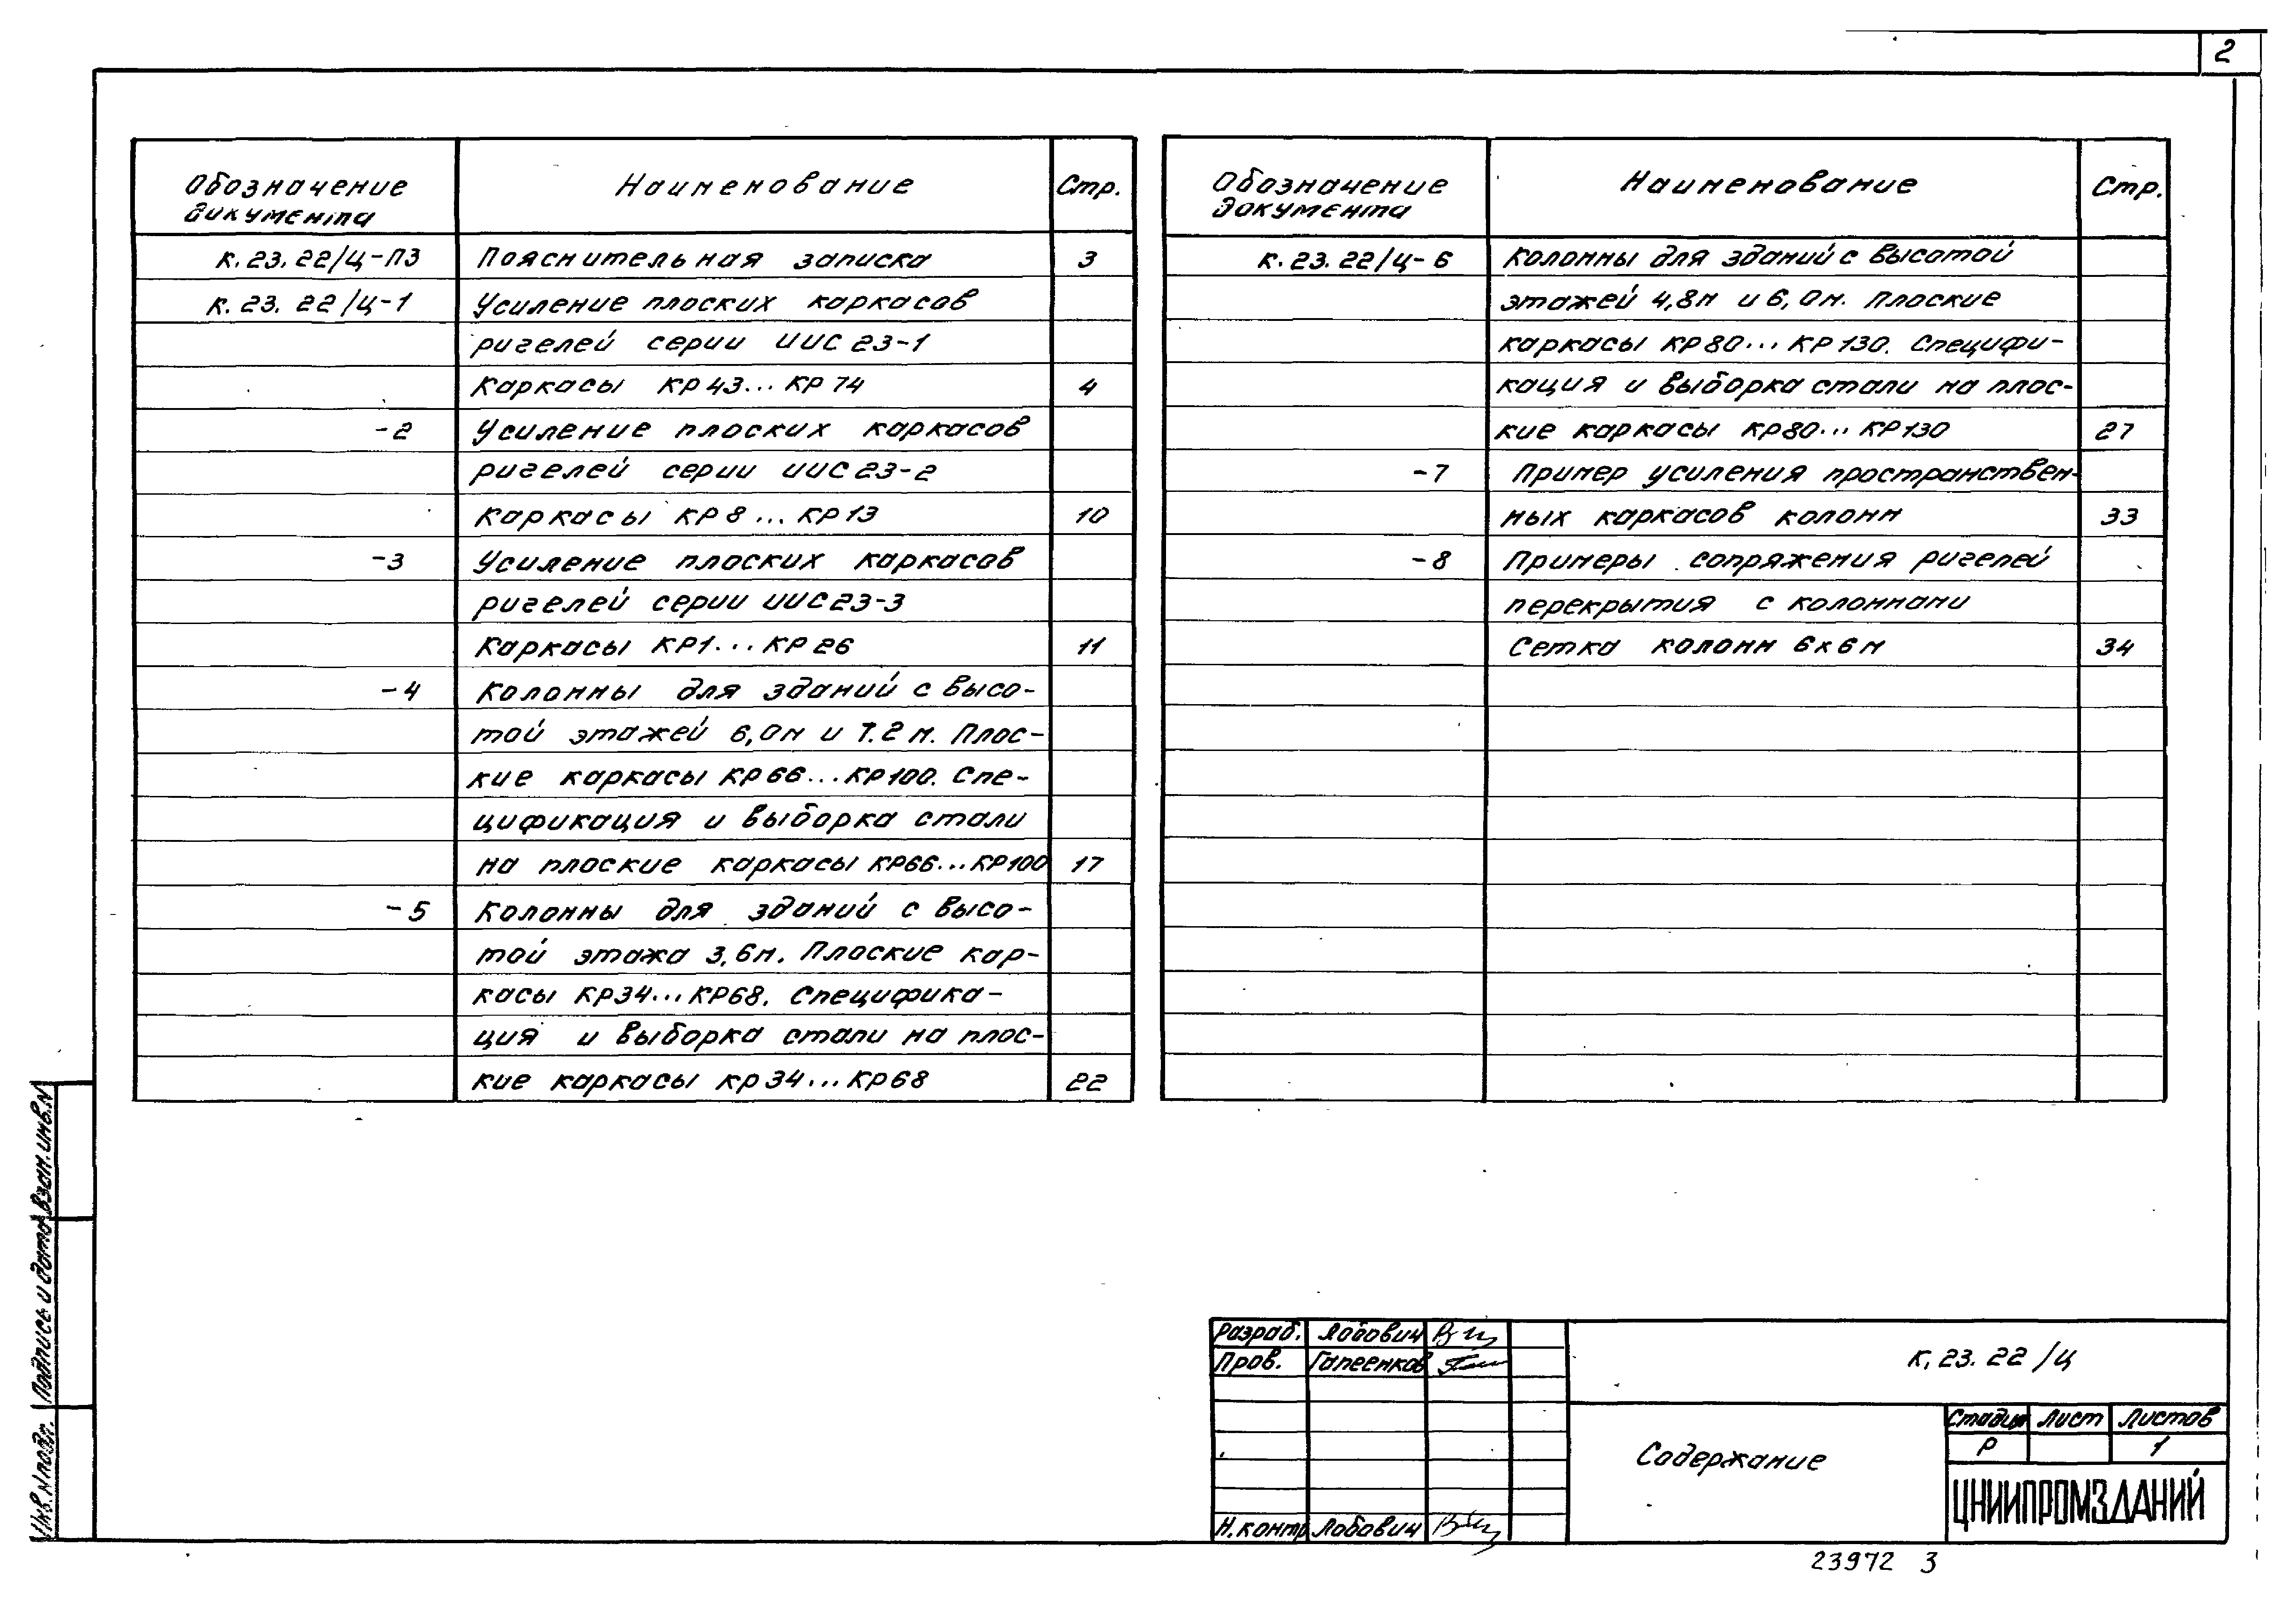 2
Обозначение документа Наименование Стр.
К.23.22/Ц-ПЗ Пояснительная записка 3
К.23.22/Ц-1 Усиление плоских каркасов
ригелей серии ИИС 23-1
Каркасы КР43...КР74 4
-2 Усиление плоских каркасов
ригелей серии ИИС 23-2
Каркасы КР8...КР13 10
-3 Усиление плоских каркасов
ригелей серии ИИС23-3
Каркасы КР1...КР26 11
-4 Колонны для зданий с высо-
той этажей 6,0м и 7.2 м. Плос-
кие каркасы КР66...КР100. Спе-
цификация и выборка стали
на плоские каркасы КР66...КР100 17
-5 Колонны для зданий с высо-
той этажа 3,6м. Плоские кар-
касы КР34...КР68. Специфика-
ция и выборка стали на плос-
кие каркасы КР34...КР68 22
Обозначение документа Наименование Стр.
К.23.22/Ц-6 Колонны для зданий с высотой
этажей 4,8м и 6,0м. Плоские
каркасы КР80...КР130. Специфи-
кация и выборка стали на плос-
кие каркасы КР80...КР130 27
-7 Пример усиления пространствен-
ных каркасов колонн 33
-8 Примеры сопряжения ригелей
перекрытия с колоннами
Сетка колонн 6х6м 34
Инв.N подл. Подпись и дата Взам.инв.N
Разраб. Лобович
Пров. Гапеенков
Н.контр Лобович
К.23.22/Ц
Содержание
Стадия Лист Листов
Р 1
ЦНИИПРОМЗДАНИЙ
23972 3